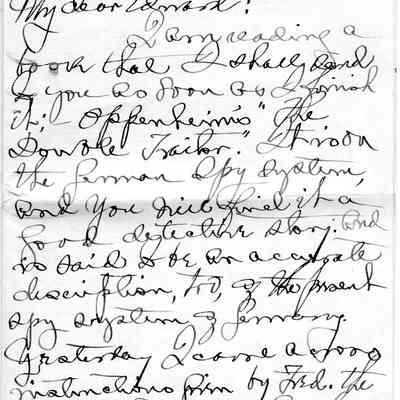 My dear Edward:
I am reading a
book that I shall send
to you as soon as I finish
it; Oppenheim's "The
Double Traitor." It is on
the German spy system,
and you will find it a
good detective story, and
is said to be an accurate
description, too, of the present
spy system of Germany.
Yesterday I came across
instructions given by Fred. the